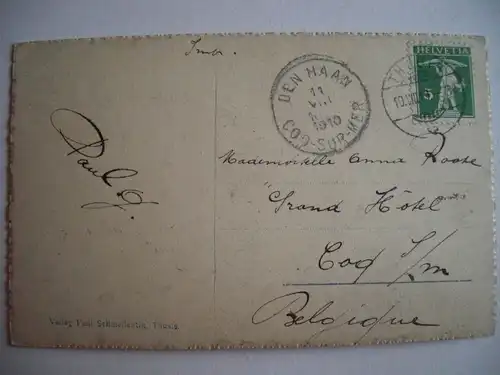 Impr.
DEN HAAN
11
VIII
1910
COQ-SUR-MER
HELVETIA
5
Paul G.
Mademoiselle Anna Roose
"Grand Hôtel"
Coq S/m
Belgique
Verlag Paul Schaufelin, Thusis